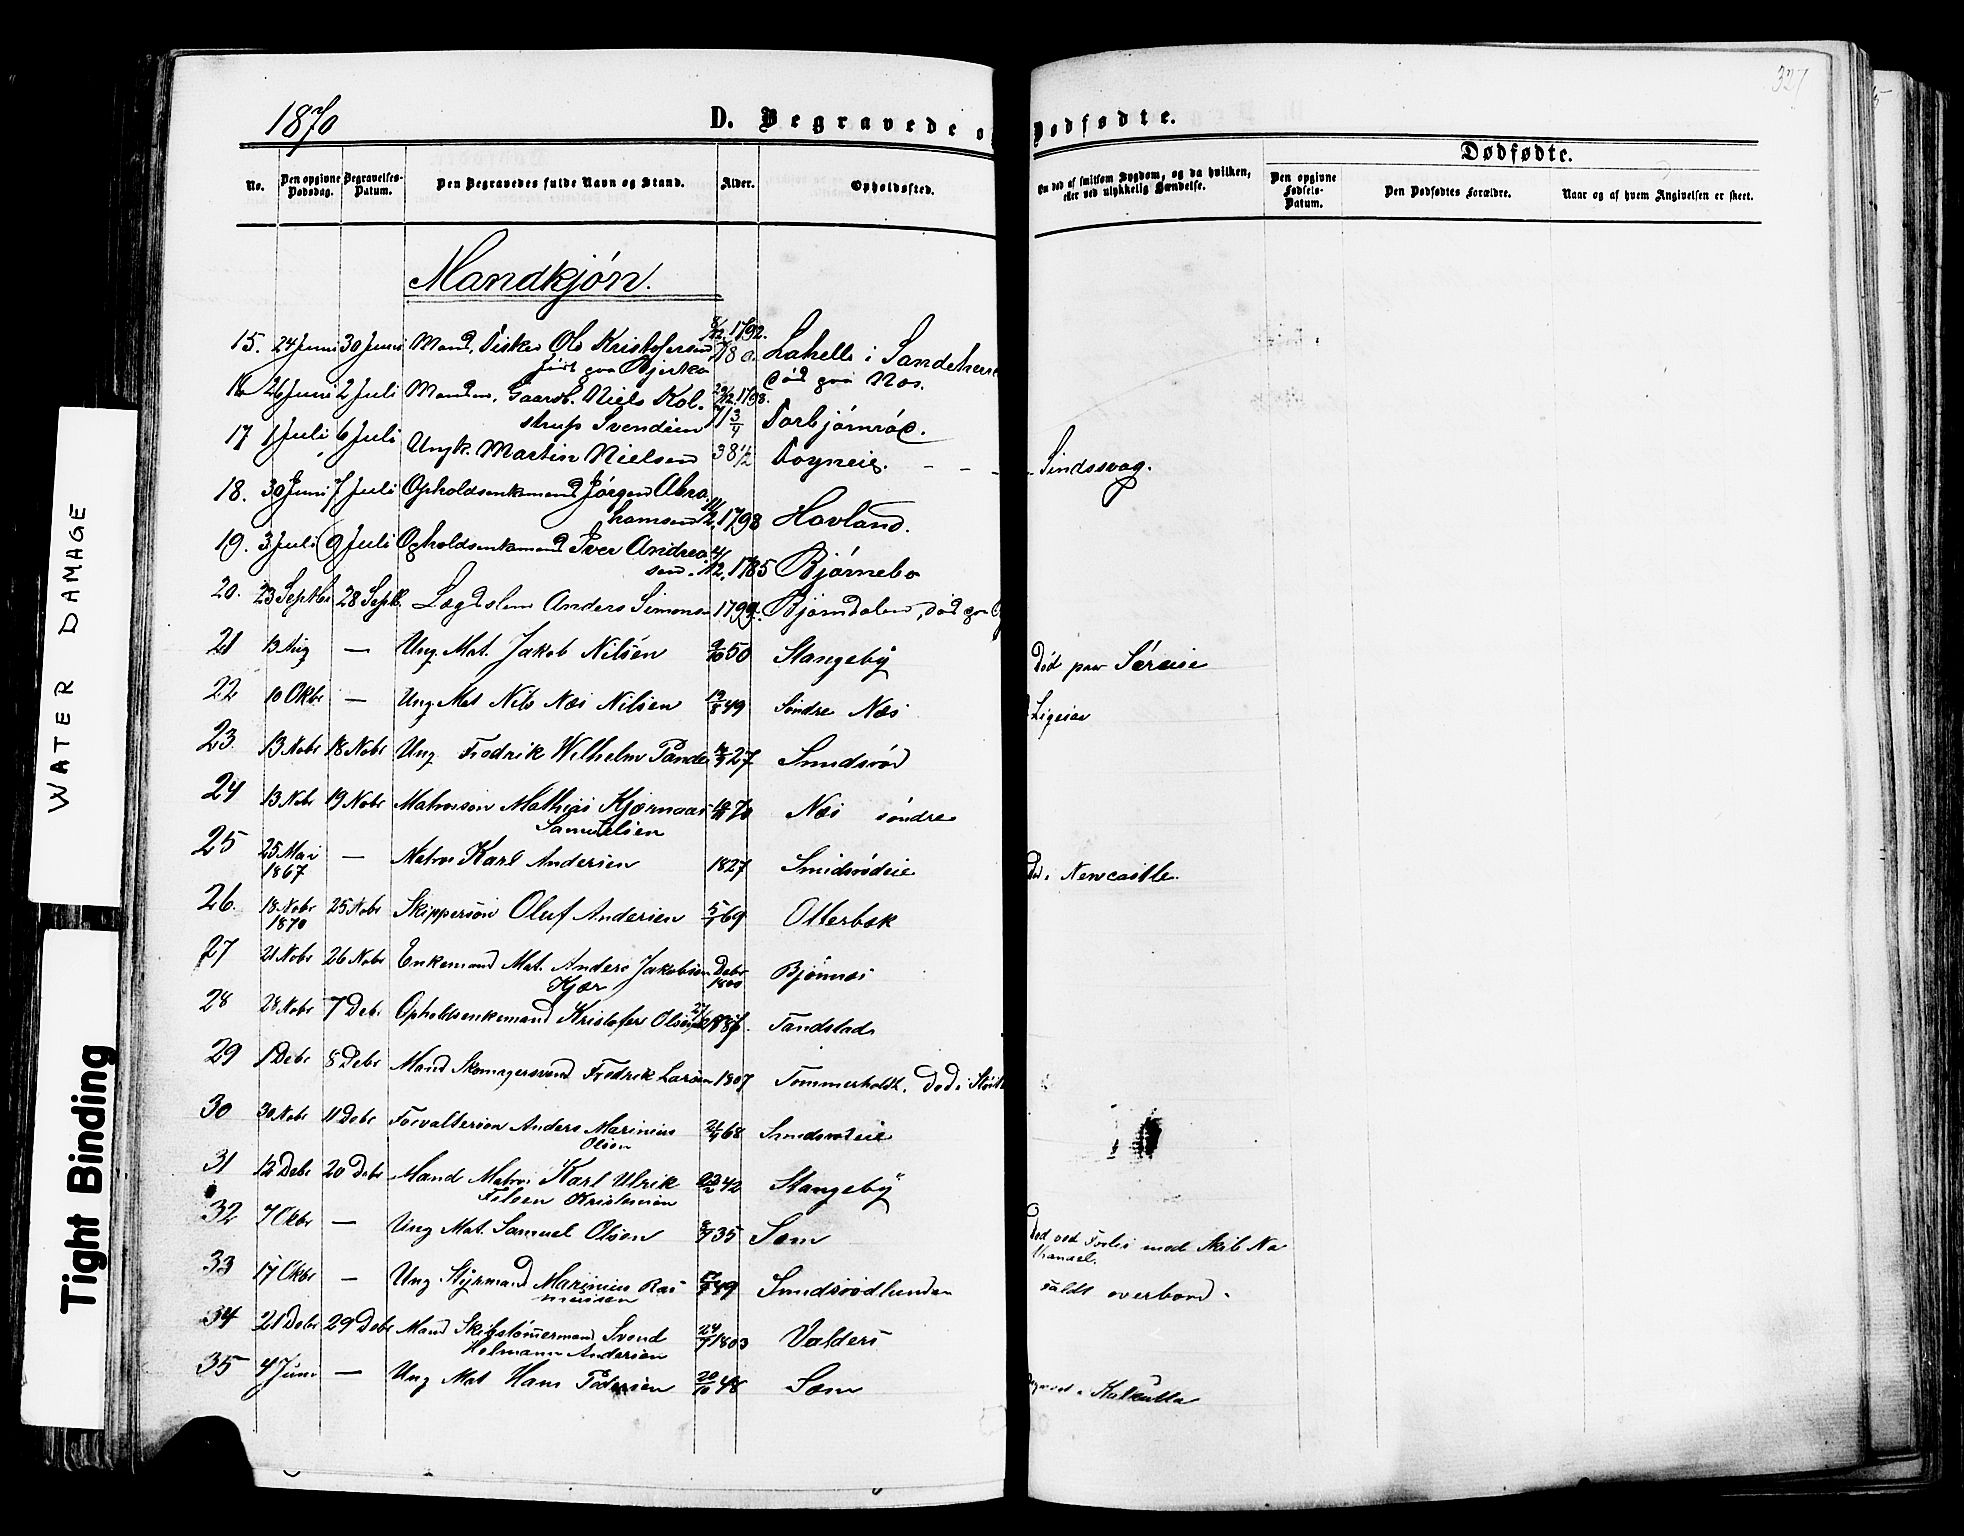 327
1870
D. Begravede o
Dødfødte.
Dødfødte.
No.
Den opgivne Dødsdag.
Begravelses-Datum.
Den Begravedes fulde Navn og Stand.
Alder.
Opholdssted.
En død af smitsom Sygdom, og da hvilken, eller ved ulykkelig Hændelse.
Den opgivne Fødsels-Datum.
Den Dødfødtes Forældre.
Naar og af hvem Angivelsen er skeet.
Mandkjøn.
15. 24 Juni 30 Juni Mand, Fisker Ole Kristofersen 8/12 1792. Lahelle i Sandeherre
født paa Bjerka 78 a. død paa Næs.
16 26 Juni 2 Juli Mandm, Gaardb. Niels Kol- 1798.
strup Svendsen 71 3/4 Torbjørnrød.
17 1 Juli 6 Juli Ungk. Martin Nielsen 38 1/2 Togneie. - - - Sindssvag.
18. 30 Juni 7 Juli Opholdsenkemand Jørgen Abra-
hamsen 1798 Havland.
19. 3 Juli 9 Juli Opholdsenkemand Iver Andrea-
sen. 1785 Bjørnebo
20. 23 Septbr 28 Septb. Lægdslem Anders Simonsen 1799. Bjørndalen, død paa
21 13 Aug — Ung. Mat. Jakob Nilsen 50 Stangeby Død paa Søreise
22 10 Okbr — Ung. Mat Nils Næs Nilsen 19/8 49 Søndre Næs Ligesaa
23. 13 Nobr 18 Nobr Ung. Fredrik Wilhelm 27 Smidsrød
24 13 Nobr 19 Nobr Matrosson Mathias Kjærnaas 70 Næs søndre
Samuelsen
25 25 Mai — Matros Karl Andersen 1827 Smidsrødeie Død i Newcastle.
1867
26. 18 Nobr 25 Nobr Skippersøn Oluf Andersen 5/7 69 Otterbæk
1870
27 21 Nobr 26 Nobr Enkemand Mat. Anders Jakobsen Debr Bjønnæs
Kjær 1800
28 28 Nobr 7 Debr Opholdsenkemand Kristofer Olsen Tandstad
29 1 Debr 8 Debr Mand Skomagersvend Fredrik Larsen 1807 Tommerholdt. Død i
30 30 Nobr 11 Debr Forvaltersøn Anders Marinius 68 Smidsrødeie
Olsen
31 12 Debr 20 Debr Mand Matros Karl Ulrik 42 Stangeby
Kristensen
32 7 Okbr — Ung Mat. Samuel Olsen 35 Sem Død ved Forlis med Skib Na
33 17 Okbr — Ung Styrmand Marinius Ras 49 Smidsrødlunden Faldt overbord.
musen
34 21 Debr 29 Debr Mand Skibstømmermand Svend 24/7 1803 Valders
Holmann Andersen
35 4 Juni — Ung Mat Hans Pedersen 20/10 48 Sem Kalkutta
WATER DAMAGE
Tight Binding